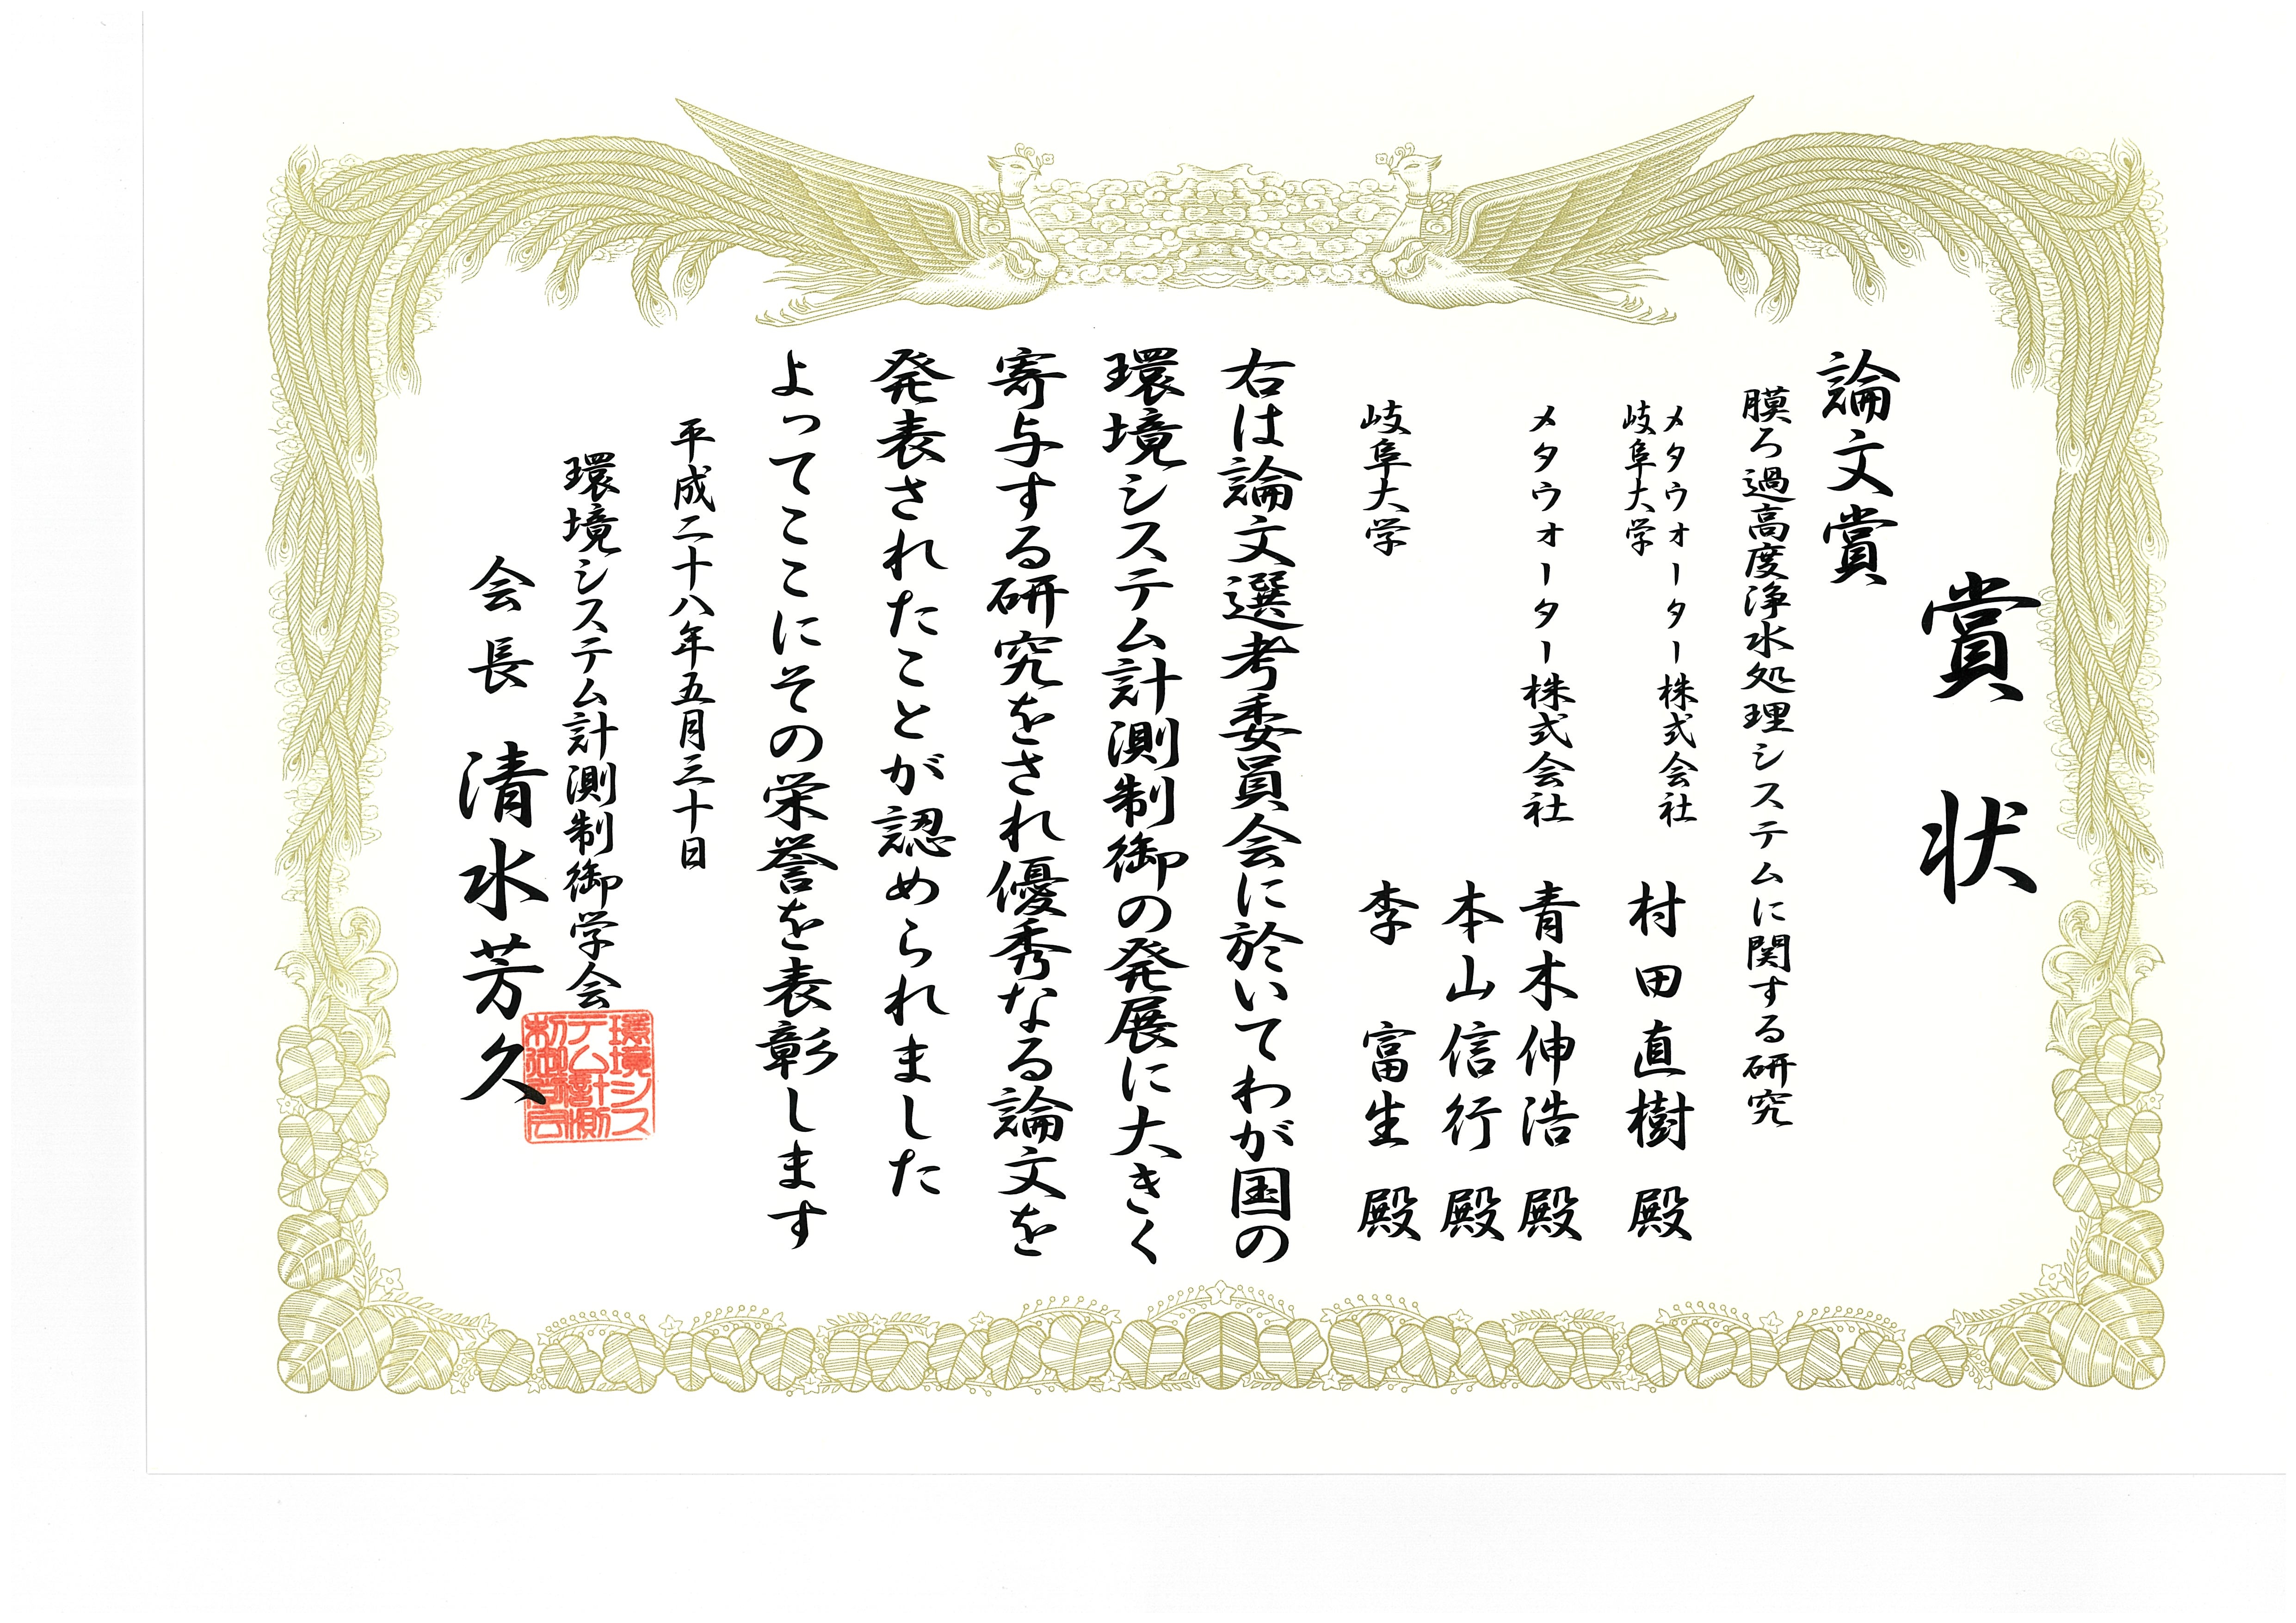 賞状
論文賞
膜ろ過高度浄水処理システムに関する研究
メタウォーター株式会社
岐阜大学
村田直樹 殿
メタウォーター株式会社
青木伸浩 殿
本山信行 殿
岐阜大学
李 富生 殿
右は論文選考委員会に於いてわが国の
環境システム計測制御の発展に大きく
寄与する研究をされ優秀なる論文を
発表されたことが認められました
よってここにその栄誉を表彰します
平成二十八年五月三十日
環境システム計測制御学会
会長 清水芳久
環境シス
テム計測
制御学会